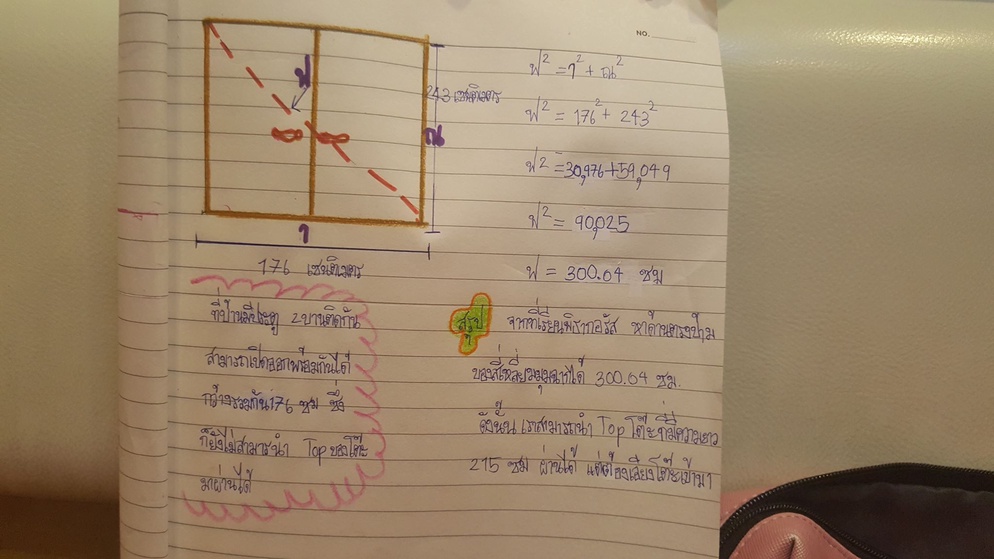 NO.
ฟ
243 เซนติเมตร
ณ
1
176 เซนติเมตร
ฟ² = 1² + ณ²
ฟ² = 176² + 243²
ฟ² = 30,976 + 59,049
ฟ² = 90,025
ฟ = 300.04 ซม
ที่บ้านมีประตู 2 บานติดกัน
สามารถเปิดออกพร้อมกันได้
กว้างรวมกัน 176 ซม ซึ่ง
ก็ยังไม่สามารนำ Top ของโต๊ะ
มาผ่านได้
สรุป จากที่เรียนพีธากอรัส หาด้านตรงข้าม
ของสี่เหลี่ยมมุมฉากได้ 300.04 ซม.
ดังนั้น เราสามารถนำ Top โต๊ะที่มีความยาว
215 ซม ผ่านได้ แต่ต้องเอียงโต๊ะเข้ามา